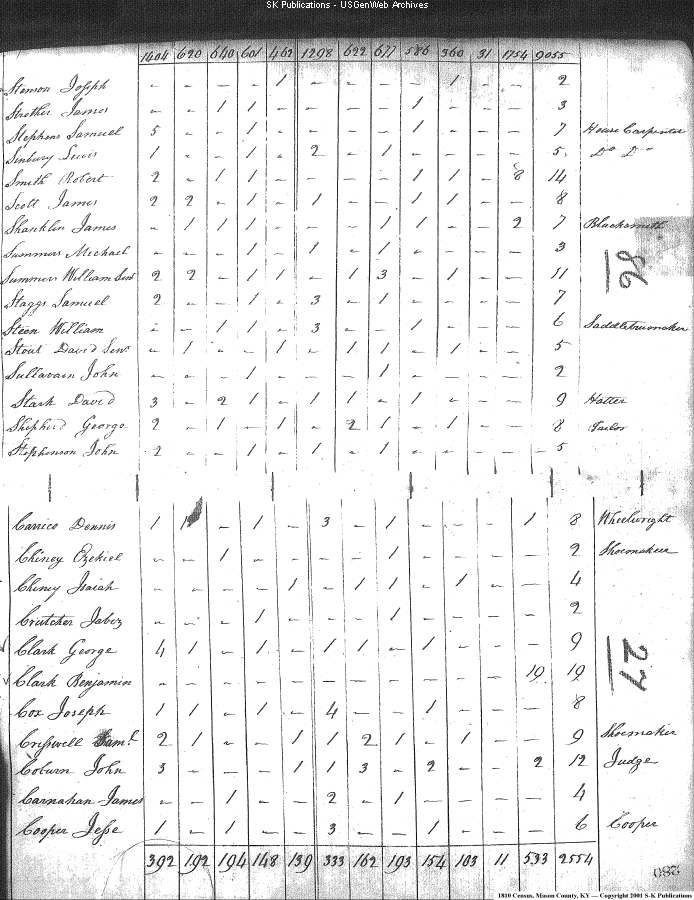 SK Publications - USGenWeb Archives
1404 620 640 601 462 1298 622 677 586 360 31 1754 9055
Stemson Joseph - - - - 1 - - - - 1 - - 2
Strother James - - 1 1 - - - - 1 - - - 3
Stephens Samuel 5 - - 1 - - - - 1 - - - 7 House Carpenter
Senbury Lewis 1 - - 1 - 2 - 1 - - - - 5 Do Do
Smith Robert 2 - 1 1 - - - - 1 1 - 8 14
Scott James 2 2 - 1 - 1 - - 1 1 - - 8
Shanklin James - 1 1 1 - - - 1 1 - - 2 7 Blacksmith
Summers Michael - - - 1 - 1 - 1 - - - - 3
86
Summers William Senr 2 2 - 1 1 - 1 3 - 1 - - 11
Staggs Samuel 2 - - 1 - 3 - 1 - - - - 7
Steen William - - 1 1 - 3 - - 1 - - - 6 Saddletreemaker
Stout David Senr - 1 - - 1 - 1 1 - 1 - - 5
Sullavain John - - - 1 - - - 1 - - - - 2
Stark David 3 - 2 1 - 1 1 - 1 - - - 9 Hatter
Shepherd George 2 - 1 - 1 - 2 1 - 1 - - 8 Tailor
Stephenson John 2 - - 1 - 1 - 1 - - - - 5
Carrico Dennis 1 1 - 1 - 3 - 1 - - - 1 8 Wheelwright
Chiney Ezekiel - - 1 - - - - 1 - - - - 2 Shoemaker
Cheny Isaiah - - - - 1 - 1 1 - 1 - - 4
Crutcher Jabez - - - 1 - - - 1 - - - - 2
Clark George 4 1 - 1 - 1 1 - 1 - - - 9
27
Clark Benjamin - - - - - - - - - - - 19 19
Cox Joseph 1 1 - 1 - 4 - - 1 - - - 8
Creswell Saml 2 1 - - 1 1 2 1 - 1 - - 9 Shoemaker
Coburn John 3 - - - 1 1 3 - 2 - - 2 12 Judge
Carnahan James - - 1 - - 2 - 1 - - - - 4
Cooper Jesse 1 - 1 - - 3 - - 1 - - - 6 Cooper
392 192 194 148 139 333 162 193 154 103 11 533 2554
280
1810 Census, Mason County, KY — Copyright 2001 S-K Publications